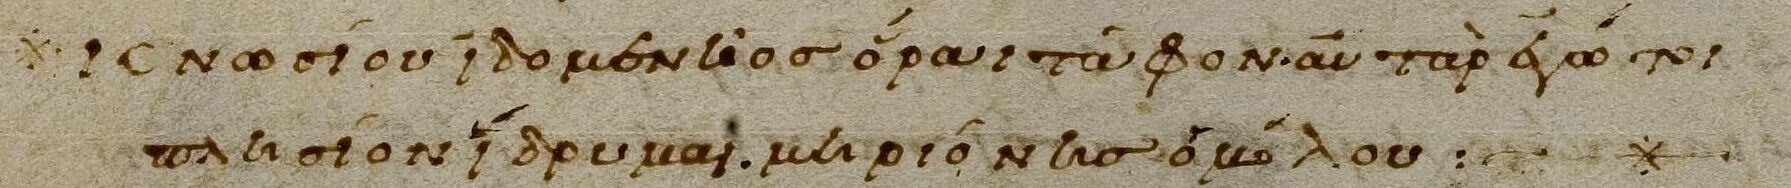 ※ Κνωσίου ἰδομενῆος ὅραι τάφον. αὐτὰρ ἐγώ τοι
πλησίον ἵδρυμαι. μηριόνης ὁ μόλου : ※